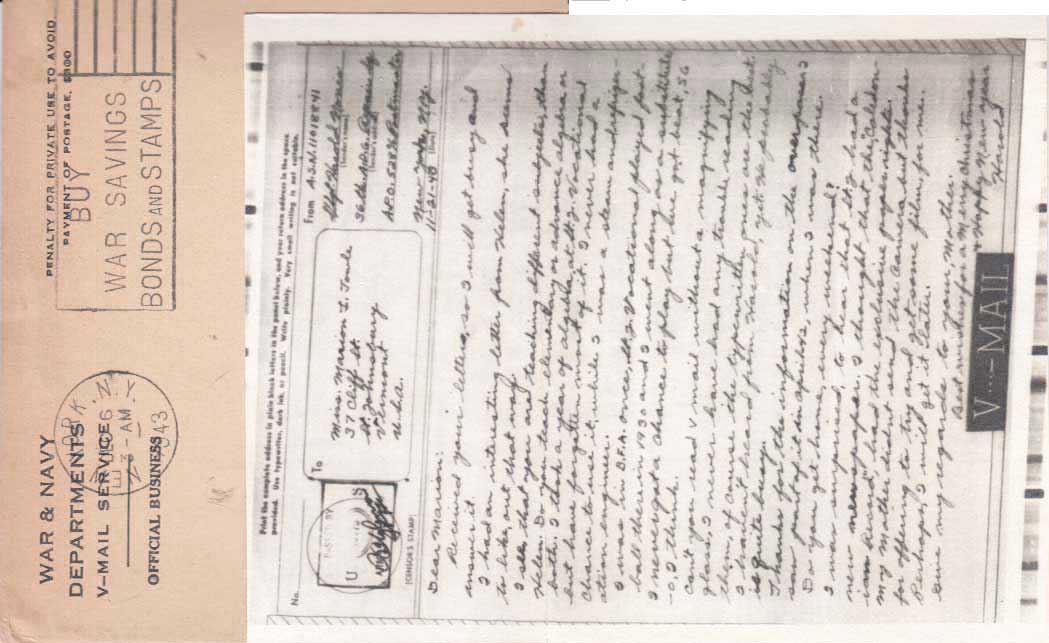 WAR & NAVY
DEPARTMENTS
V-MAIL SERVICE
OFFICIAL BUSINESS
PENALTY FOR PRIVATE USE TO AVOID
PAYMENT OF POSTAGE, $300
DEC 6
3 - AM
1943
N.Y.
BUY
WAR SAVINGS
BONDS AND STAMPS
Print the complete address in plain block letters in the panel below, and your return address in the space
provided. Use typewriter, dark ink, or pencil. Write plainly. Very small writing is not suitable.
No.
(CENSOR'S STAMP)
To
Miss. Marion L.
37 Cliff St.
St. Johnsbury
Vermont
U.S.A.
From
A.S.N. 11018841
Harold
(Sender's name)
36th
(Sender's address)
A.P.O. 528 % Postmaster
New York, N.Y.
11-21-43
(Date)
Dear Marion:
Received your letter, so I will get busy and
answer it.
I had an interesting letter from Helen, she seems
to like, out that way.
I see that you are teaching different subjects, than
Helen. Do you teach elementary or advance algebra or
both. I took a year of algebra, at St. J. Vocational
but have forgotten most of it. I never had a
chance to use it, while I was a steam and refriger-
ation engineer.
I was in B.F.A. once, St. J. Vocational played foot-
ball there in 1930 and I went along, as a substitute
I never got a chance, to play but we got beat, 56
-0, I think.
Can't you read V mail without a magnifying
glass, I never have had any trouble reading
them, of course the typewritten ones are the best.
I haven't heard from Harold, yet he probably
is quite busy.
Thanks for the information on the
saw put. I in April 1942, when I was there.
Do you get home, every weekend?
I was surprised, to hear that St. J. had a
new newspaper, I thought that the "Caledon-
ian Record," had the exclusive paper rights.
My mother didn't send the camera but thanks
for offering to try and get some film, for me.
Perhaps, I will get it later.
Give my regards to your Mother.
Best wishes for a Merry Christmas
& Happy New Year
Harold
V···—MAIL